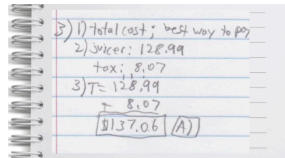 3) 1) total cost; best way to pay
2) juicer: 128.99
tax: 8.07
3) T= 128.99
+ 8.07
$137.06 (A)